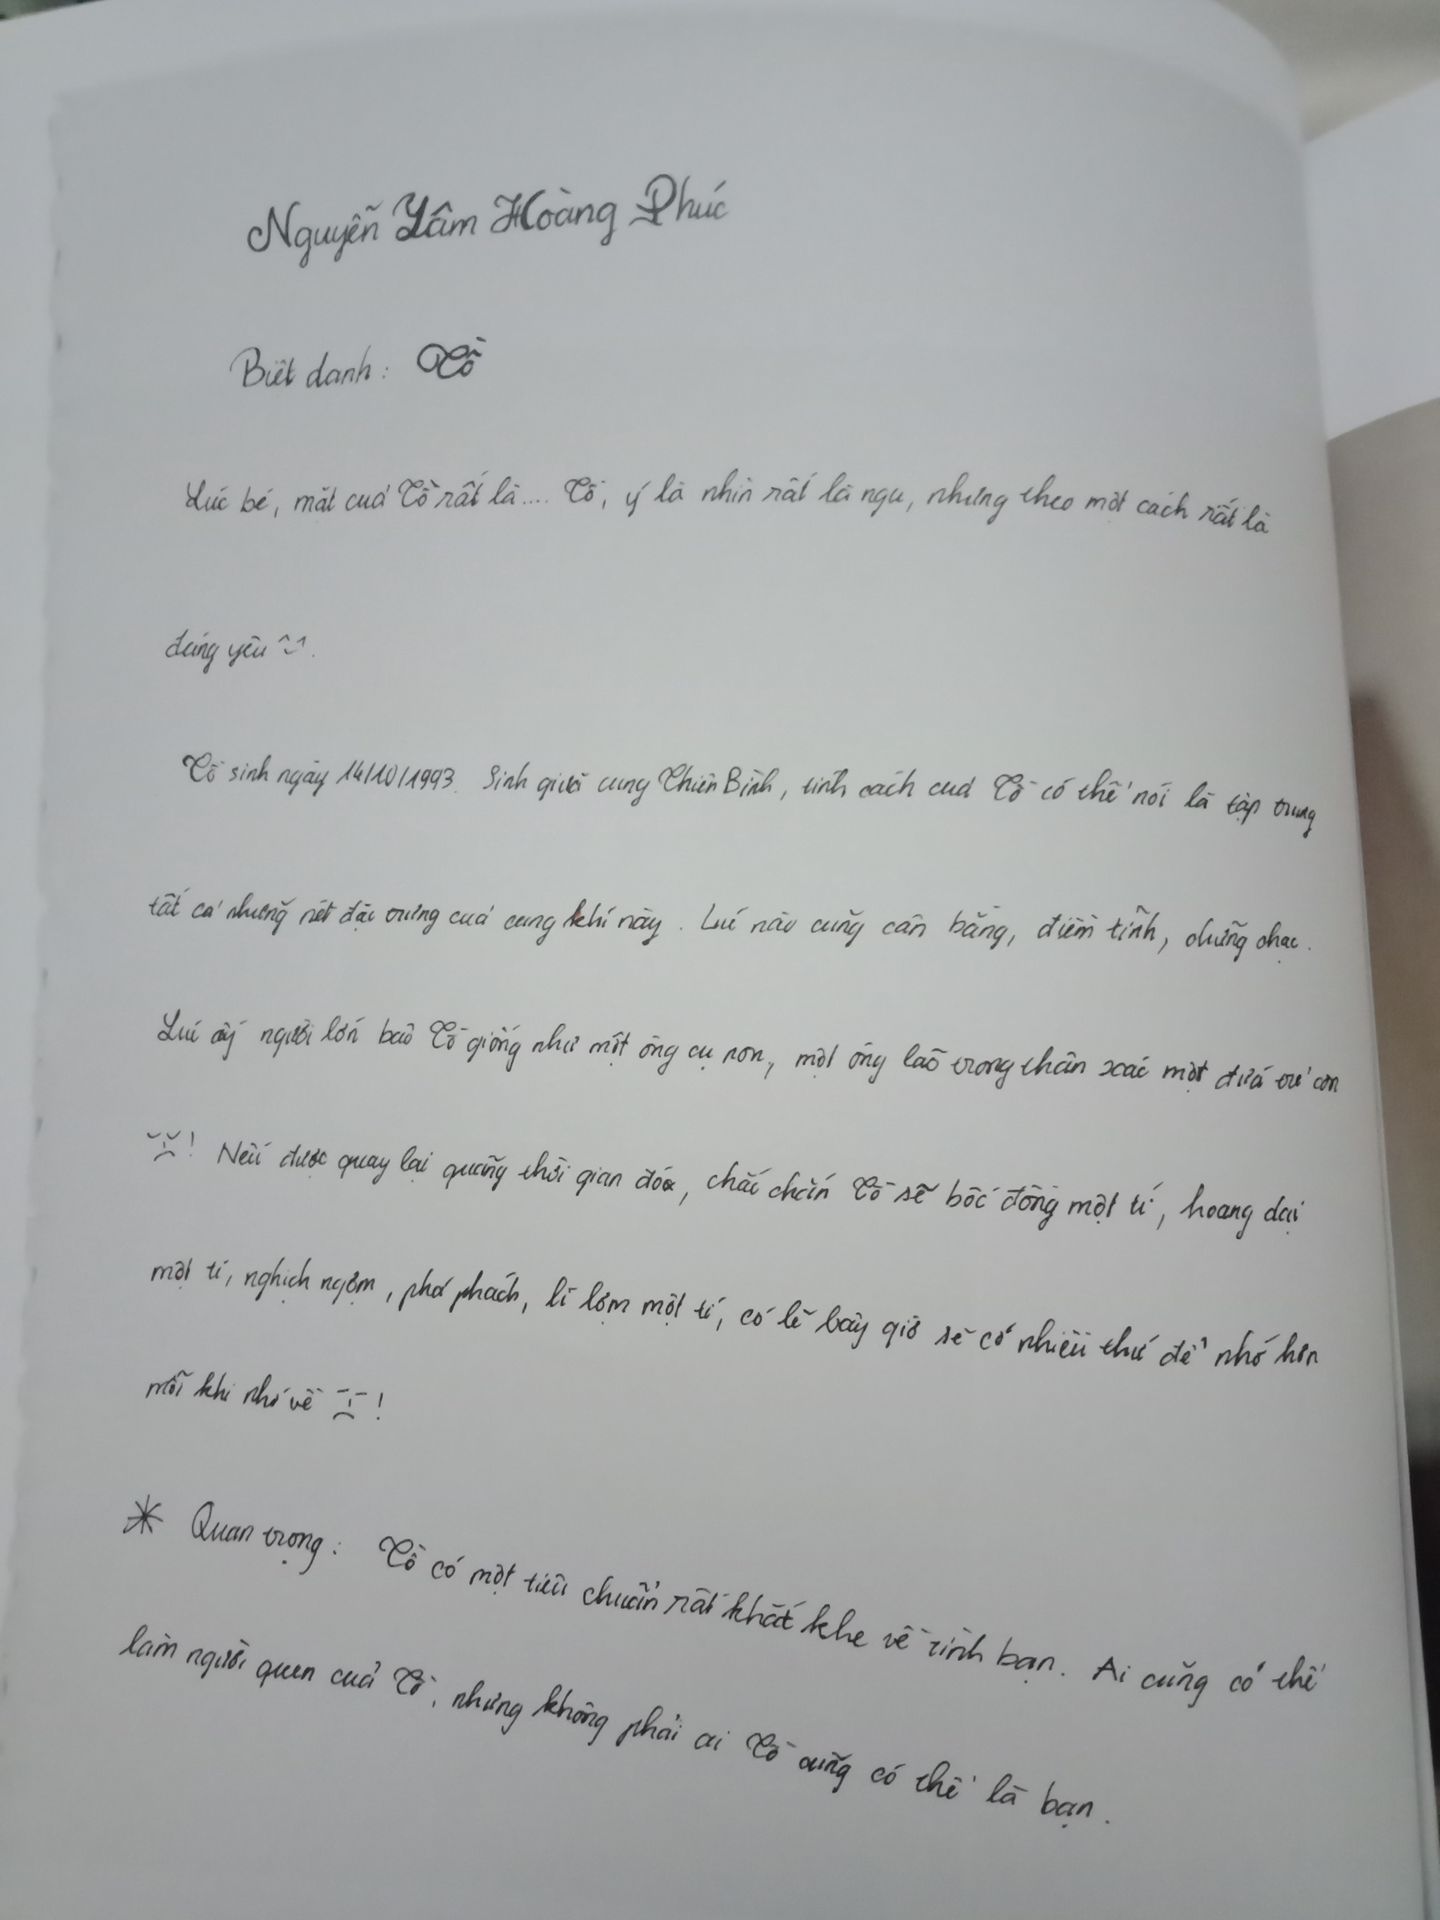 Nguyễn Lâm Hoàng Phúc
Biệt danh: Tồ
Lúc bé, mặt của Tồ rất là.... Tồ, ý là nhìn rất là ngu, nhưng theo một cách rất là
đáng yêu ^-^.
Tồ sinh ngày 14/10/1993. Sinh giữa cung Thiên Bình, tính cách của Tồ có thể nói là tập trung
tất cả những nét đặc trưng của cung khí này. Lúc nào cũng cân bằng, điềm tĩnh, chững chạc.
Lúc ấy người lớn bảo Tồ giống như một ông cụ non, một ông lão trong thân xác một đứa trẻ con
! Nếu được quay lại quãng thời gian đó, chắc chắn Tồ sẽ bốc đồng một tí, hoang dại
một tí, nghịch ngợm, phá phách, lì lợm một tí, có lẽ bây giờ sẽ có nhiều thứ để nhớ hơn
mỗi khi nhớ về !
* Quan trọng: Tồ có một tiêu chuẩn rất khắt khe về tình bạn. Ai cũng có thể
làm người quen của Tồ, nhưng không phải ai Tồ cũng có thể là bạn.